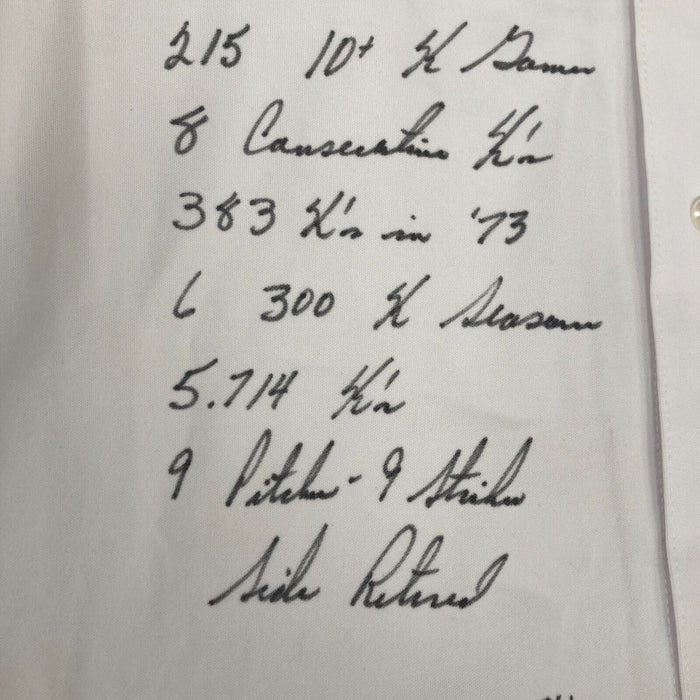 215 10+ K Games
8 Consecutive K's
383 K's in '73
6 300 K Seasons
5.714 K's
9 Pitches - 9 Strikes
Side Retired